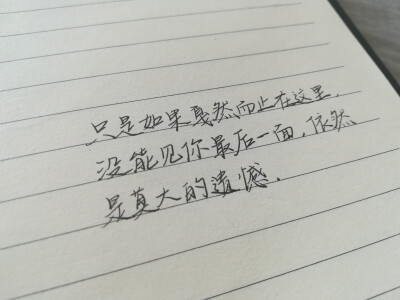 只是如果戛然而止在这里,
没能见你最后一面,依然
是莫大的遗憾.